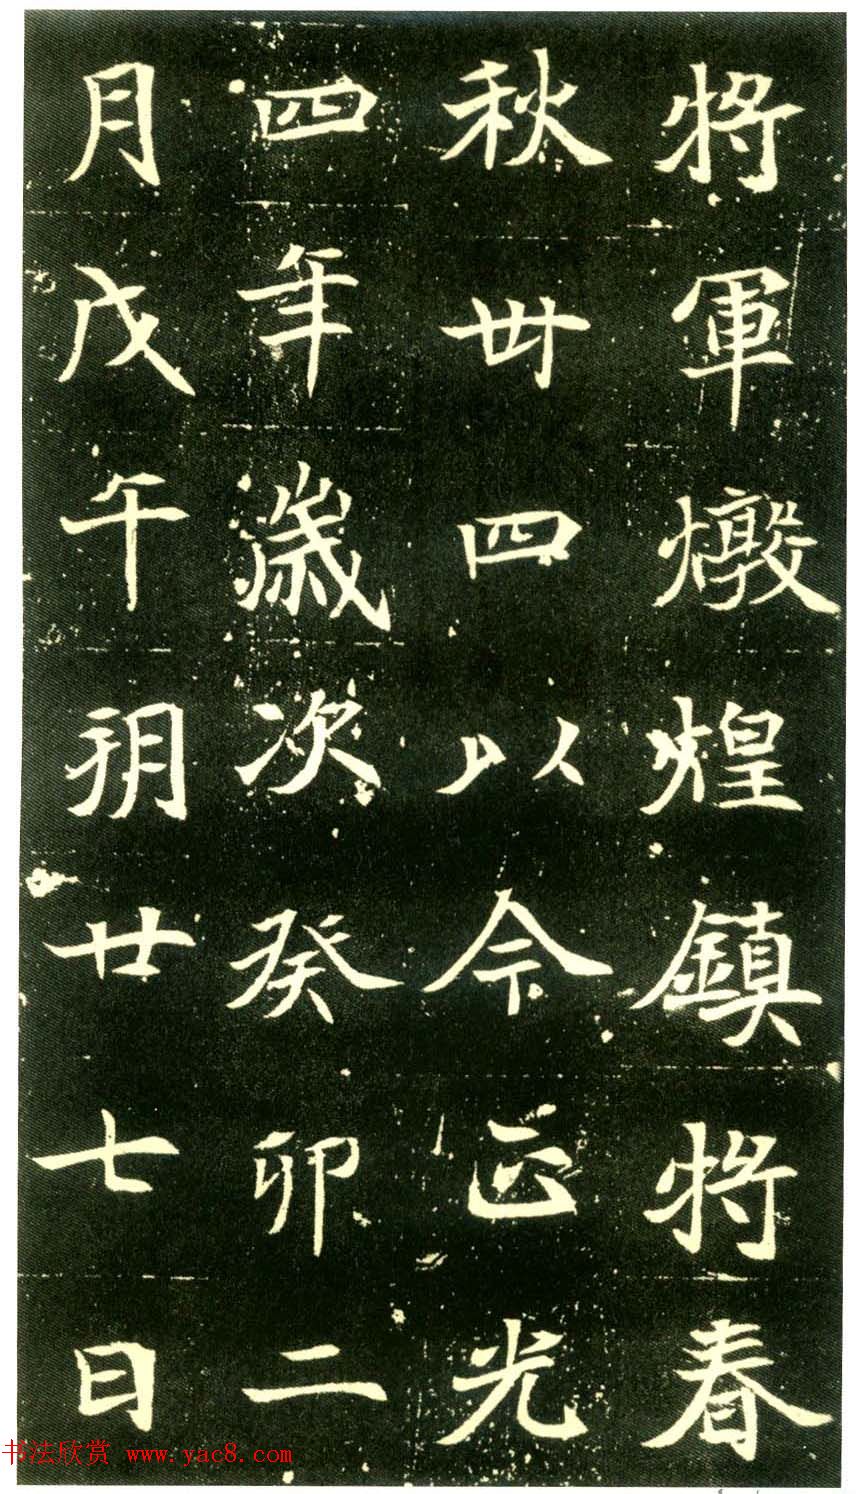 将軍燉煌鎮将春
秋卌四以今正光
四年歲次癸卯二
月戊午朔廿七日
书法欣赏 www.yac8.com